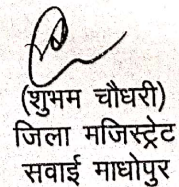 (शुभम चौधरी)
जिला मजिस्ट्रेट
सवाई माधोपुर